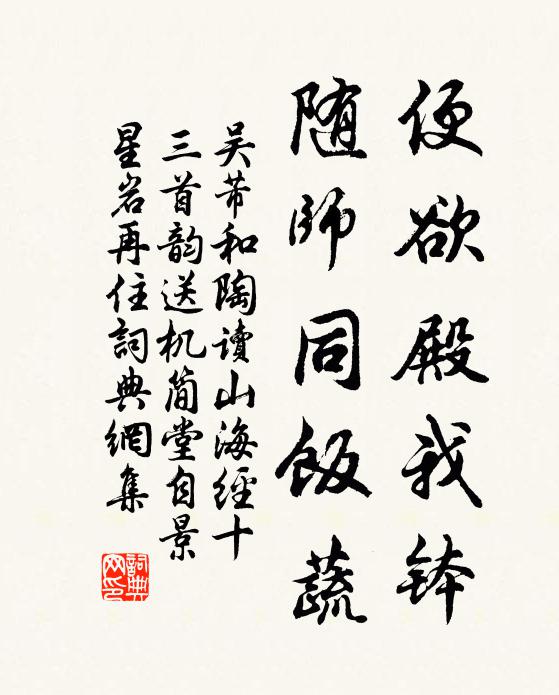 便欲殿我钵
随師同飯蔬
吴芾和陶讀山海經十
三首韵送机简堂自景
星岩再住詞典網集
詞典網印